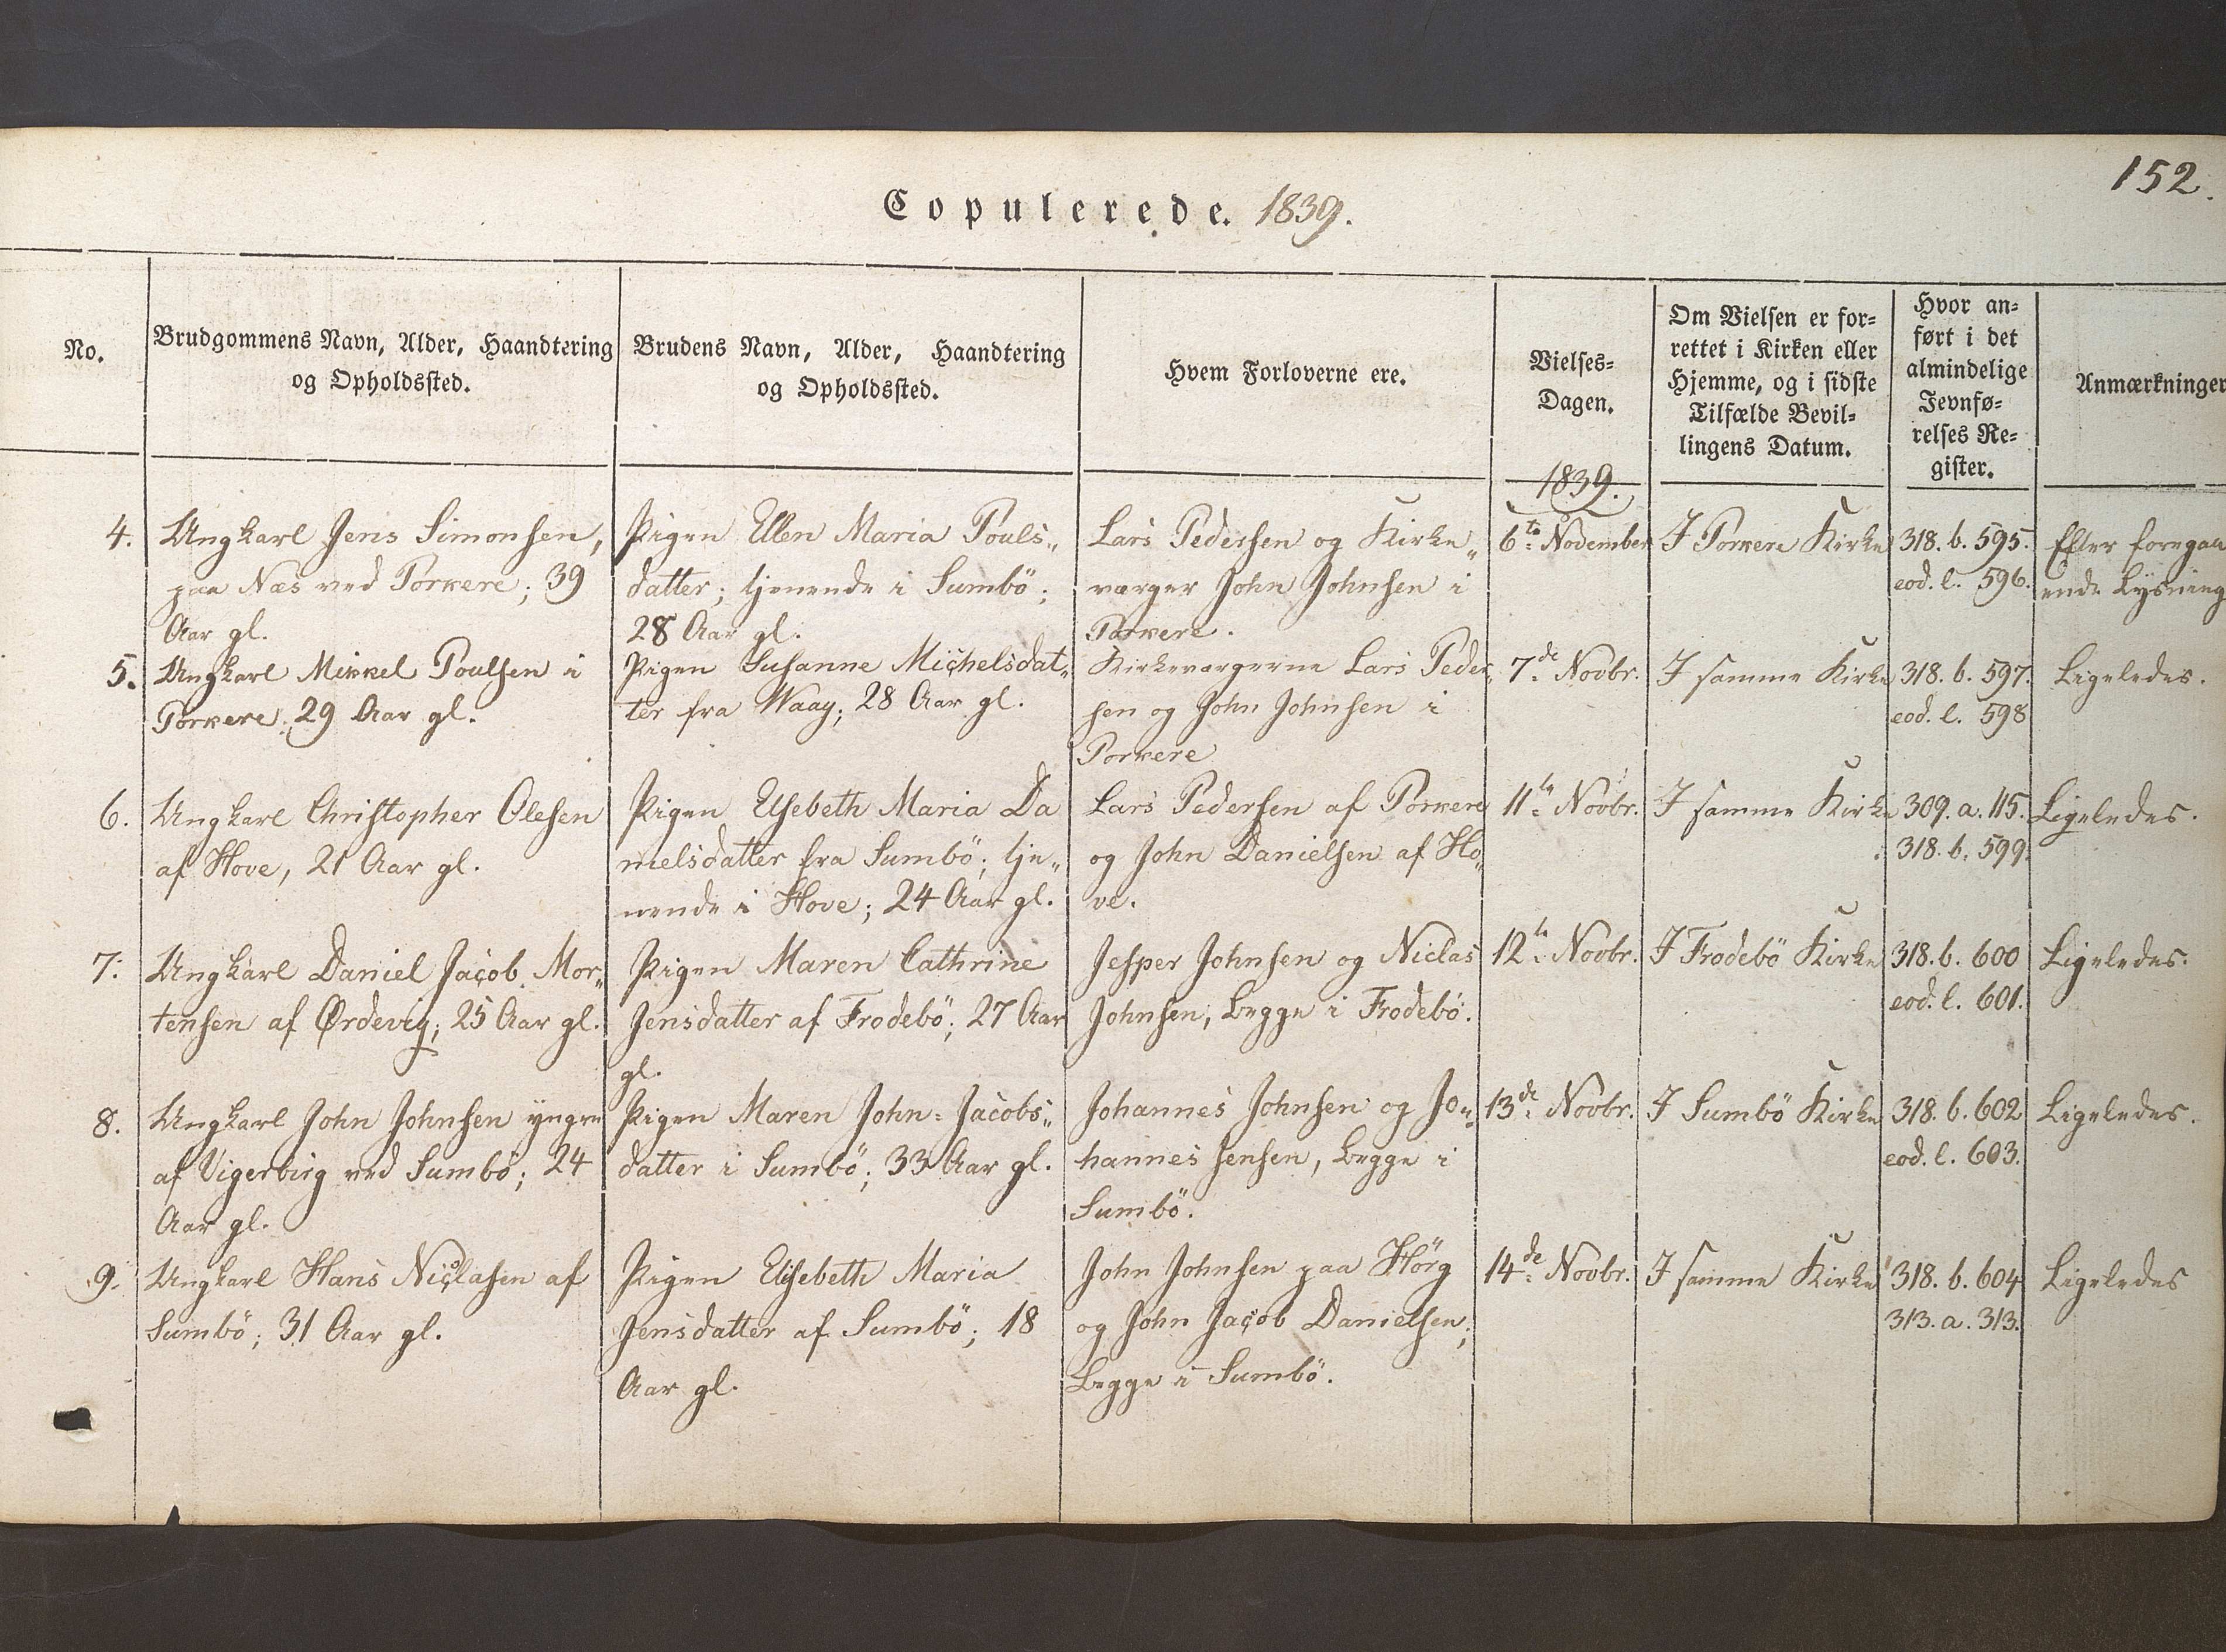 152.
Copulerede. 1839.
No.
Brudgommens Navn, Alder, Haandtering
og Opholdssted.
Brudens Navn, Alder, Haandtering
og Opholdssted.
Hvem Forloverne ere.
Vielses-
Dagen.
Om Vielsen er for-
rettet i Kirken eller
Hjemme, og i sidste
Tilfælde Bevil-
lingens Datum.
Hvor an-
ført i det
almindelige
Jevnfø-
relses Re-
gister.
Anmærkninger
1839.
4.
Ungkarl Jens Simonsen,
paa Næs ved Porkere; 39
Aar gl.
Pigen Ellen Maria Pouls„
datter; tjenende i Sumbö;
28 Aar gl.
Lars Pedersen og Kirke„
værger John Johnsen i
Porkere.
6te November
I Porkere Kirke
318. b. 595.
eod. l. 596.
Efter foregaa
ende Lysning
5.
Ungkarl Mikkel Poulsen i
Porkere; 29 Aar gl.
Pigen Susanne Michelsdat„
ter fra Waag; 28 Aar gl.
Kirkeværgerne Lars Peder„
sen og John Johnsen i
Porkere
7de Novbr.
I samme Kirke
318. b. 597.
eod. l. 598
Ligeledes.
6.
Ungkarl Christopher Olesen
af Hove, 21 Aar gl.
Pigen Elsebeth Maria Da
nielsdatter fra Sumbö; tje„
nende i Hove; 24 Aar gl.
Lars Pedersen af Porkere
og John Danielsen af Ho„
ve.
11te Novbr.
I samme Kirke
309. a. 115.
318. b. 599.
Ligeledes.
7.
Ungkarl Daniel Jacob Mor„
tensen af Ördevig; 25 Aar gl.
Pigen Maren Cathrine
Jensdatter af Frodebö; 27 Aar
gl.
Jesper Johnsen og Niclas
Johnsen, begge i Frodebö.
12te Novbr.
I Frodebö Kirke
318. b. 600
eod. l. 601.
Ligeledes.
8.
Ungkarl John Johnsen yngre
af Vigerbirg ved Sumbö; 24
Aar gl.
Pigen Maren John-Jacobs„
datter i Sumbö; 33 Aar gl.
Johannes Johnsen og Jo„
hannes Jensen, begge i
Sumbö.
13de Novbr.
I Sumbö Kirke
318. b. 602
eod. l. 603.
Ligeledes.
9.
Ungkarl Hans Niclasen af
Sumbö; 31 Aar gl.
Pigen Elisebeth Maria
Jensdatter af Sumbö; 18
Aar gl.
John Johnsen paa Hörg
og John Jacob Danielsen;
begge i Sumbö.
14de Novbr.
I samme Kirke
318. b. 604
313. a. 313.
Ligeledes